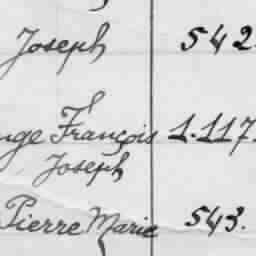 Joseph 542.
nge François 1.117.
Joseph
Pierre Marie 543.